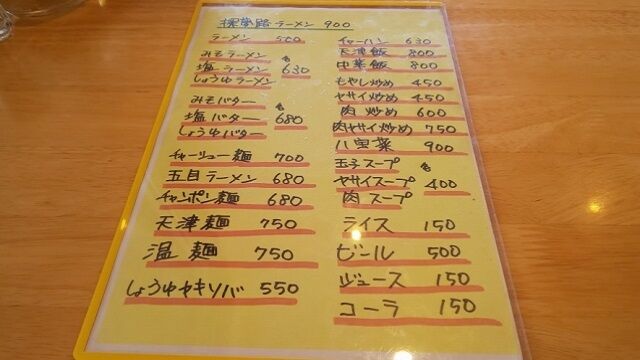 探勝路ラーメン 900
ラーメン 550
みそラーメン
塩ラーメン 各630
しょうゆラーメン
みそバター
塩バター 各680
しょうゆバター
チャーシュー麺 700
五目ラーメン 680
チャンポン麺 680
天津麺 750
温麺 750
しょうゆヤキソバ 550
チャーハン 630
天津飯 800
中華飯 800
もやし炒め 450
ヤサイ炒め 450
肉炒め 600
肉ヤサイ炒め 750
八宝菜 900
玉子スープ
ヤサイスープ 各400
肉スープ
ライス 150
ビール 500
ジュース 150
コーラ 150